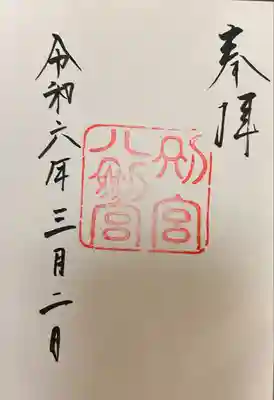 奉拝
別宮
八剣宮
令和六年三月二日